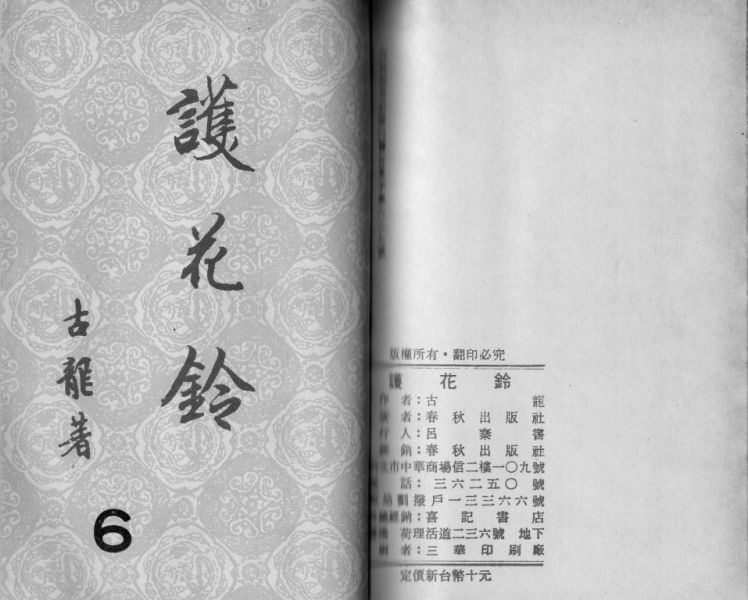 護花鈴
古龍著
6
版權所有・翻印必究
護花鈴
者：古龍
者：春秋出版社
人：呂秦書
銷：春秋出版社
市中華商場信二樓一〇九號
話：三六二五〇號
劃撥戶一三三六六號
經銷：喜記書店
荷理活道二三六號 地下
者：三華印刷廠
定價新台幣十元